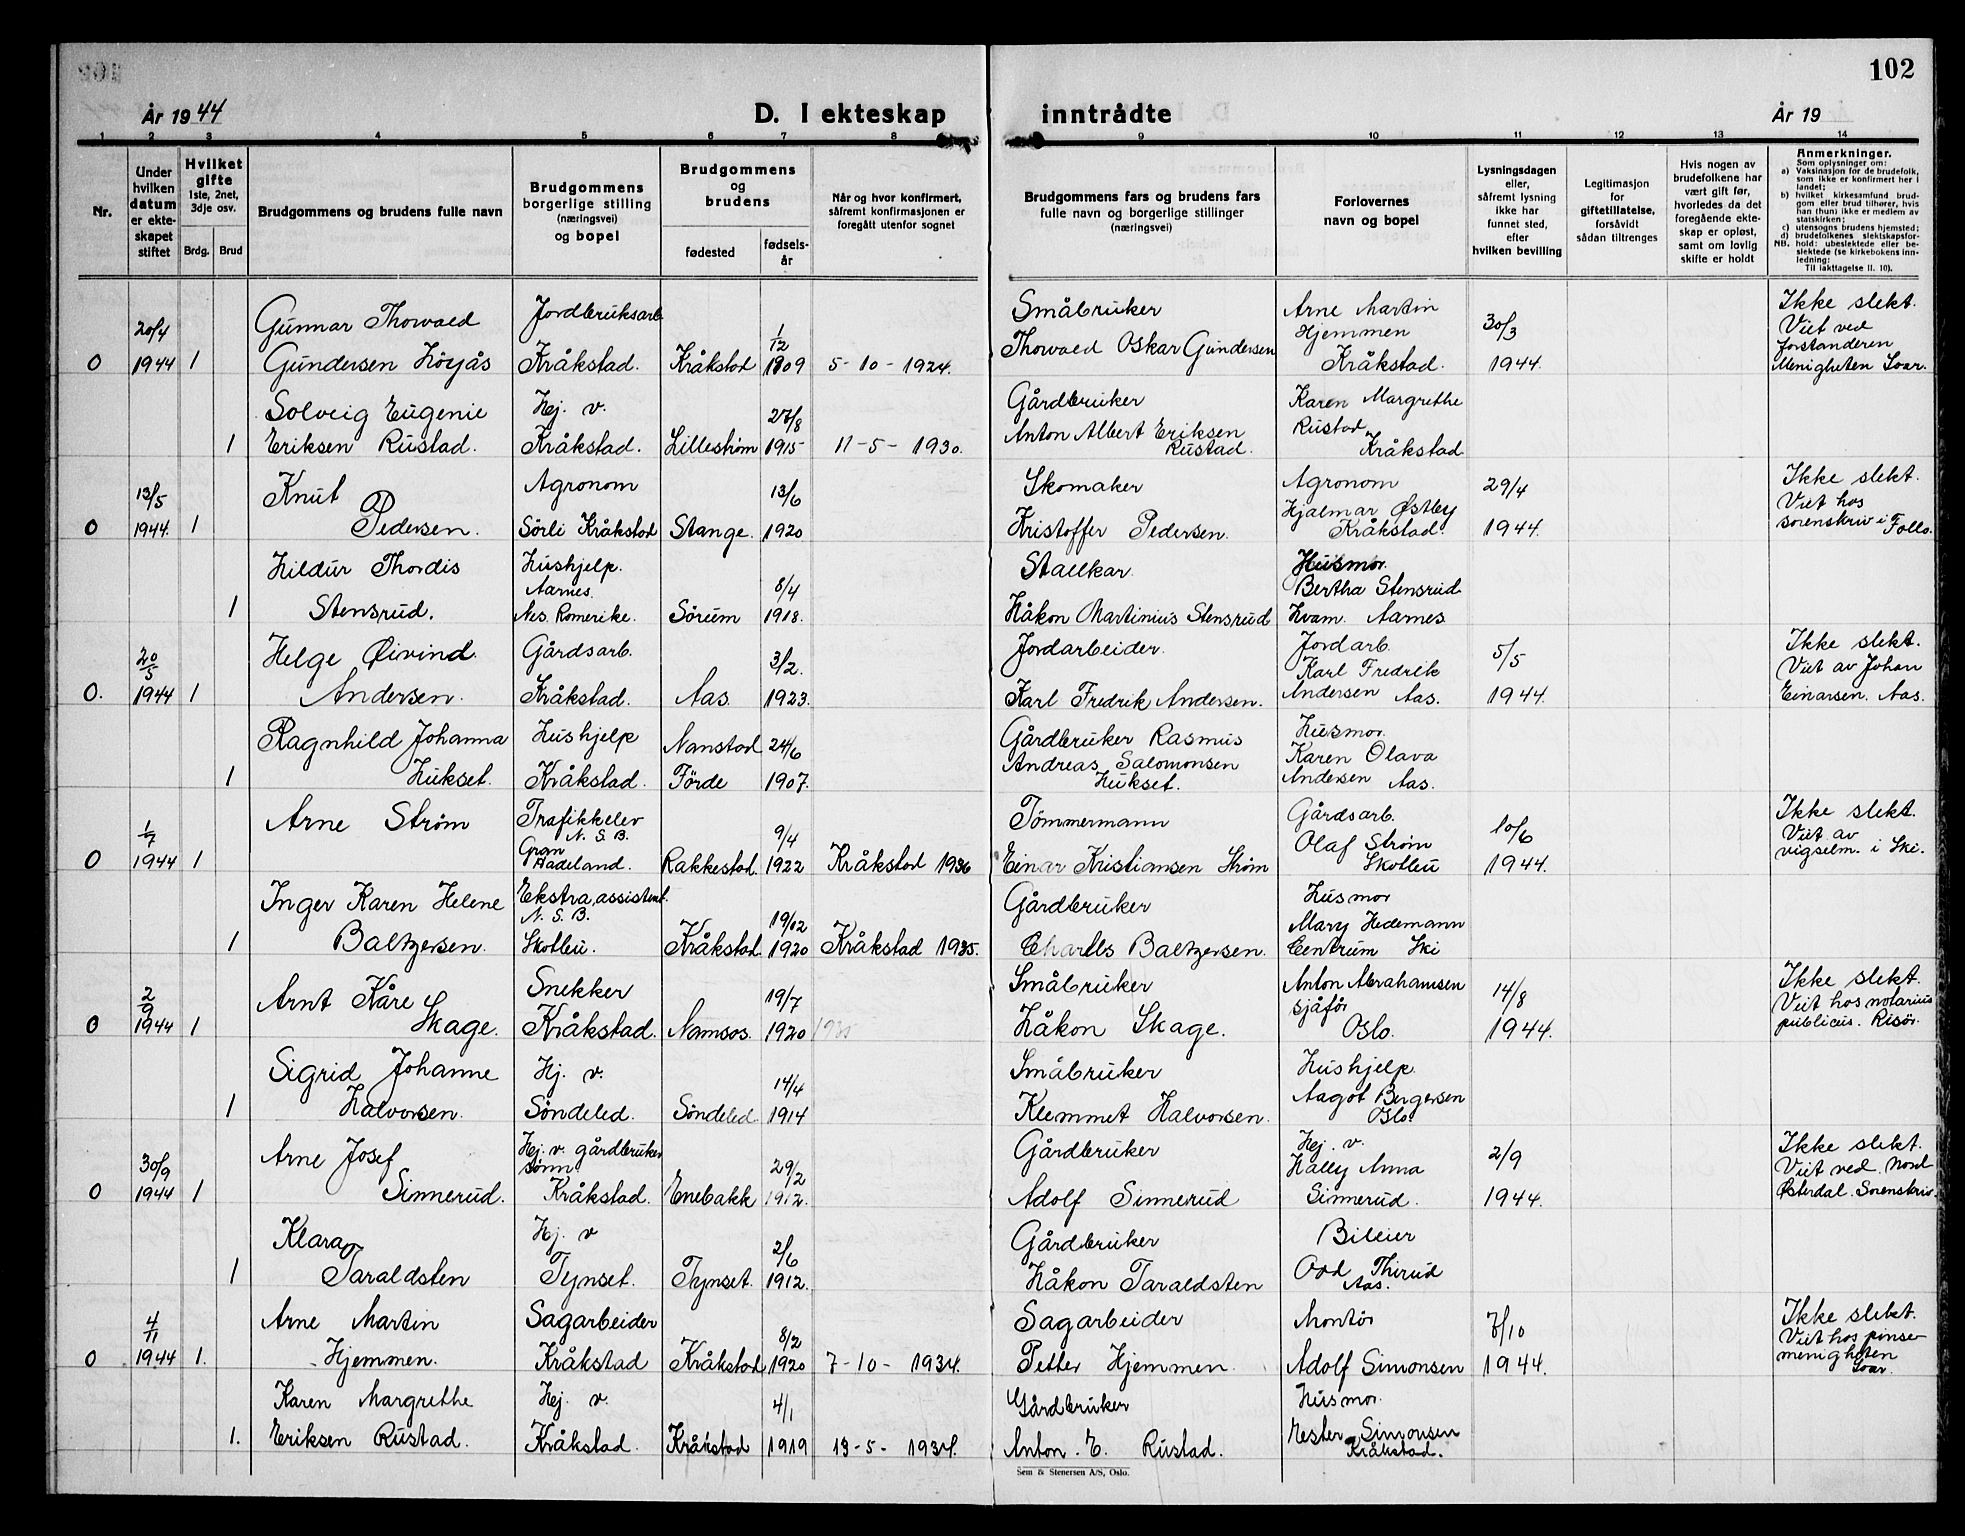 102
År 1944
D. I ekteskap inntrådte
År 19
1 2 3 4 5 6 7 8 9 10 11 12 13 14
Nr.
Under hvilken datum er ekteskapet stiftet
Hvilket gifte
1ste, 2net, 3dje osv.
Brdg. Brud
Brudgommens og brudens fulle navn
Brudgommens borgerlige stilling (næringsvei) og bopel
Brudgommens og brudens
fødested
fødselsår
Når og hvor konfirmert, såfremt konfirmasjonen er foregått utenfor sognet
Brudgommens fars og brudens fars fulle navn og borgerlige stillinger (næringsvei)
Forlovernes navn og bopel
Lysningsdagen eller, såfremt lysning ikke har funnet sted, efter hvilken bevilling
Legitimasjon for giftetillatelse, forsåvidt sådan tiltrenges
Hvis nogen av brudefolkene har vært gift før, hvorledes da det foregående ekteskap er opløst, samt om lovlig skifte er holdt
Anmerkninger.
Som oplysninger om:
a) Vaksinasjon for de brudefolk, som ikke er konfirmert her i landet;
b) hvilket kirkesamfund brudgom eller brud tilhører, hvis han (hun) ikke er medlem av statskirken;
c) utensogns brudens hjemsted;
d) brudefolkenes slektskapsforhold: ubeslektede eller beslektede (se kirkebokens innledning;
NB. Til iakttagelse II. 10).
0 20/4 1944 1 Gunnar Thorvald Gundersen Høyås Jordbruksarb Kråkstad. Kråkstad 1/12 1909 5-10-1924. Småbruker Thorvald Oskar Gundersen Arne Martin Hjemmen Kråkstad. 30/3 1944. Ikke slekt. Viet ved forstanderen Menigheten Soar.
1 Solveig Eugenie Eriksen Rustad. Hj. v. Kråkstad. Lillestrøm 27/8 1915 11-5-1930. Gårdbruker Anton Albert Eriksen Rustad. Karen Margrethe Rustad Kråkstad
0 13/5 1944. 1 Knut Pedersen. Agronom Sörli Kråkstad Stange. 13/6 1920 Skomaker Kristoffer Pedersen. Agronom Hjalmar Østby Kråkstad. 29/4 1944. Ikke slekt. Viet hos sorenskriv i Follo.
1 Hildur Thordis Stensrud. Hushjelp. Aarnes. Nes. Romerike. Sörum 8/4 1918. Stallkar. Håkon Martinius Stensrud Husmor. Bertha Stensrud Hvam. Aarnes
0. 20/5 1944 1 Helge Øivind Andersen. Gårdsarb. Kråkstad. Aas. 3/2. 1923. Jordarbeider. Karl Fredrik Andersen. Jordarb. Karl Fredrik Andersen Aas. 5/5 1944. Ikke slekt. Viet av Johan Einarsen. Aas.
1 Ragnhild Johanna Hukset. Hushjelp Kråkstad. Førde 24/6 1907. Gårdbruker Rasmus Andreas Salomonsen Hukset. Husmor. Karen Olava Andersen Aas.
0 1/7 1944 1 Arne Strøm Trafikkelev N. S. B. Gran Hadeland. Rakkestad. 9/4 1922 Kråkstad 1936 Tömmermann Einar Kristiansen Strøm Gårdsarb. Olaf Strøm Skotbu 10/6 1944. Ikke slekt. Viet av vigselm. i Ski.
1 Inger Karen Helene Baltzersen. Ekstra assistent. N. S. B. Skotbu. Kråkstad. 19/12 1920 Kråkstad 1935. Gårdbruker Charles Baltzersen. Husmor Mary Hedemann Centrum Ski
0 2/9 1944 1 Arnt Kåre Skage. Snekker Kråkstad. Namsos. 19/7 1920 1935 Småbruker Håkon Skage. Anton Abrahamsen sjåfør Oslo. 14/8 1944. Ikke slekt. Viet hos notarius publicus. Risör.
1 Sigrid Johanne Halvorsen. Hj. v. Söndeled. Söndeled. 14/4 1914 Småbruker Klemmet Halvorsen. Hushjelp. Aagot Bergersen Oslo.
0 30/9 1944 1 Arne Josef Sinnerud. Hj. v. gårdbruker sønn Kråkstad. Enebakk 29/2 1912. Gårdbruker Adolf Sinnerud Hj. v. Hally Anna Sinnerud. 2/9 1944. Ikke slekt. Viet ved. Nord Østerdal. Sorenskriv.
1 Klara Taraldsten Hj. v Tynset. Tynset. 2/6 1912. Gårdbruker Håkon Taraldsten Bileier Odd Thirud Aas.
0 4/11 1944 1. Arne Martin Hjemmen. Sagarbeider Kråkstad Kråkstad 8/2 1920 7-10-1934. Sagarbeider Petter Hjemmen. Montör Adolf Simonsen 7/10 1944. Ikke slekt. Viet hos pinsemenigheten Soar.
1. Karen Margrethe Eriksen Rustad. Hj. v. Kråkstad. Kråkstad 4/1 1919 13-5-1934. Gårdbruker Anton. E. Rustad. Husmor. Hester Simonsen Kråkstad.
Sem & Stenersen A/S, Oslo.